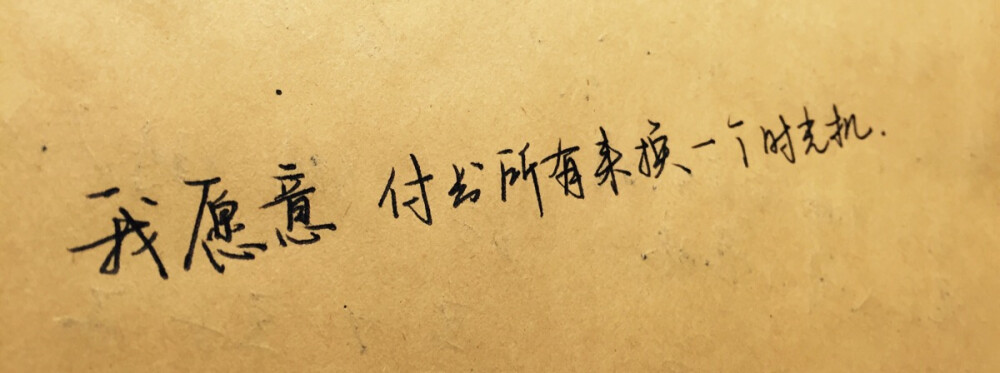 我愿意 付出所有来换一个时光机.